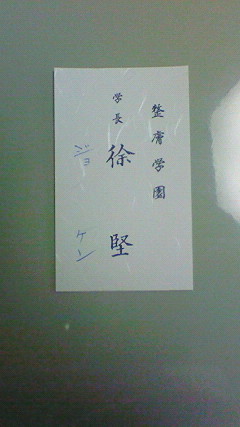 整膚学園
学長 徐 堅
ジョ ケン